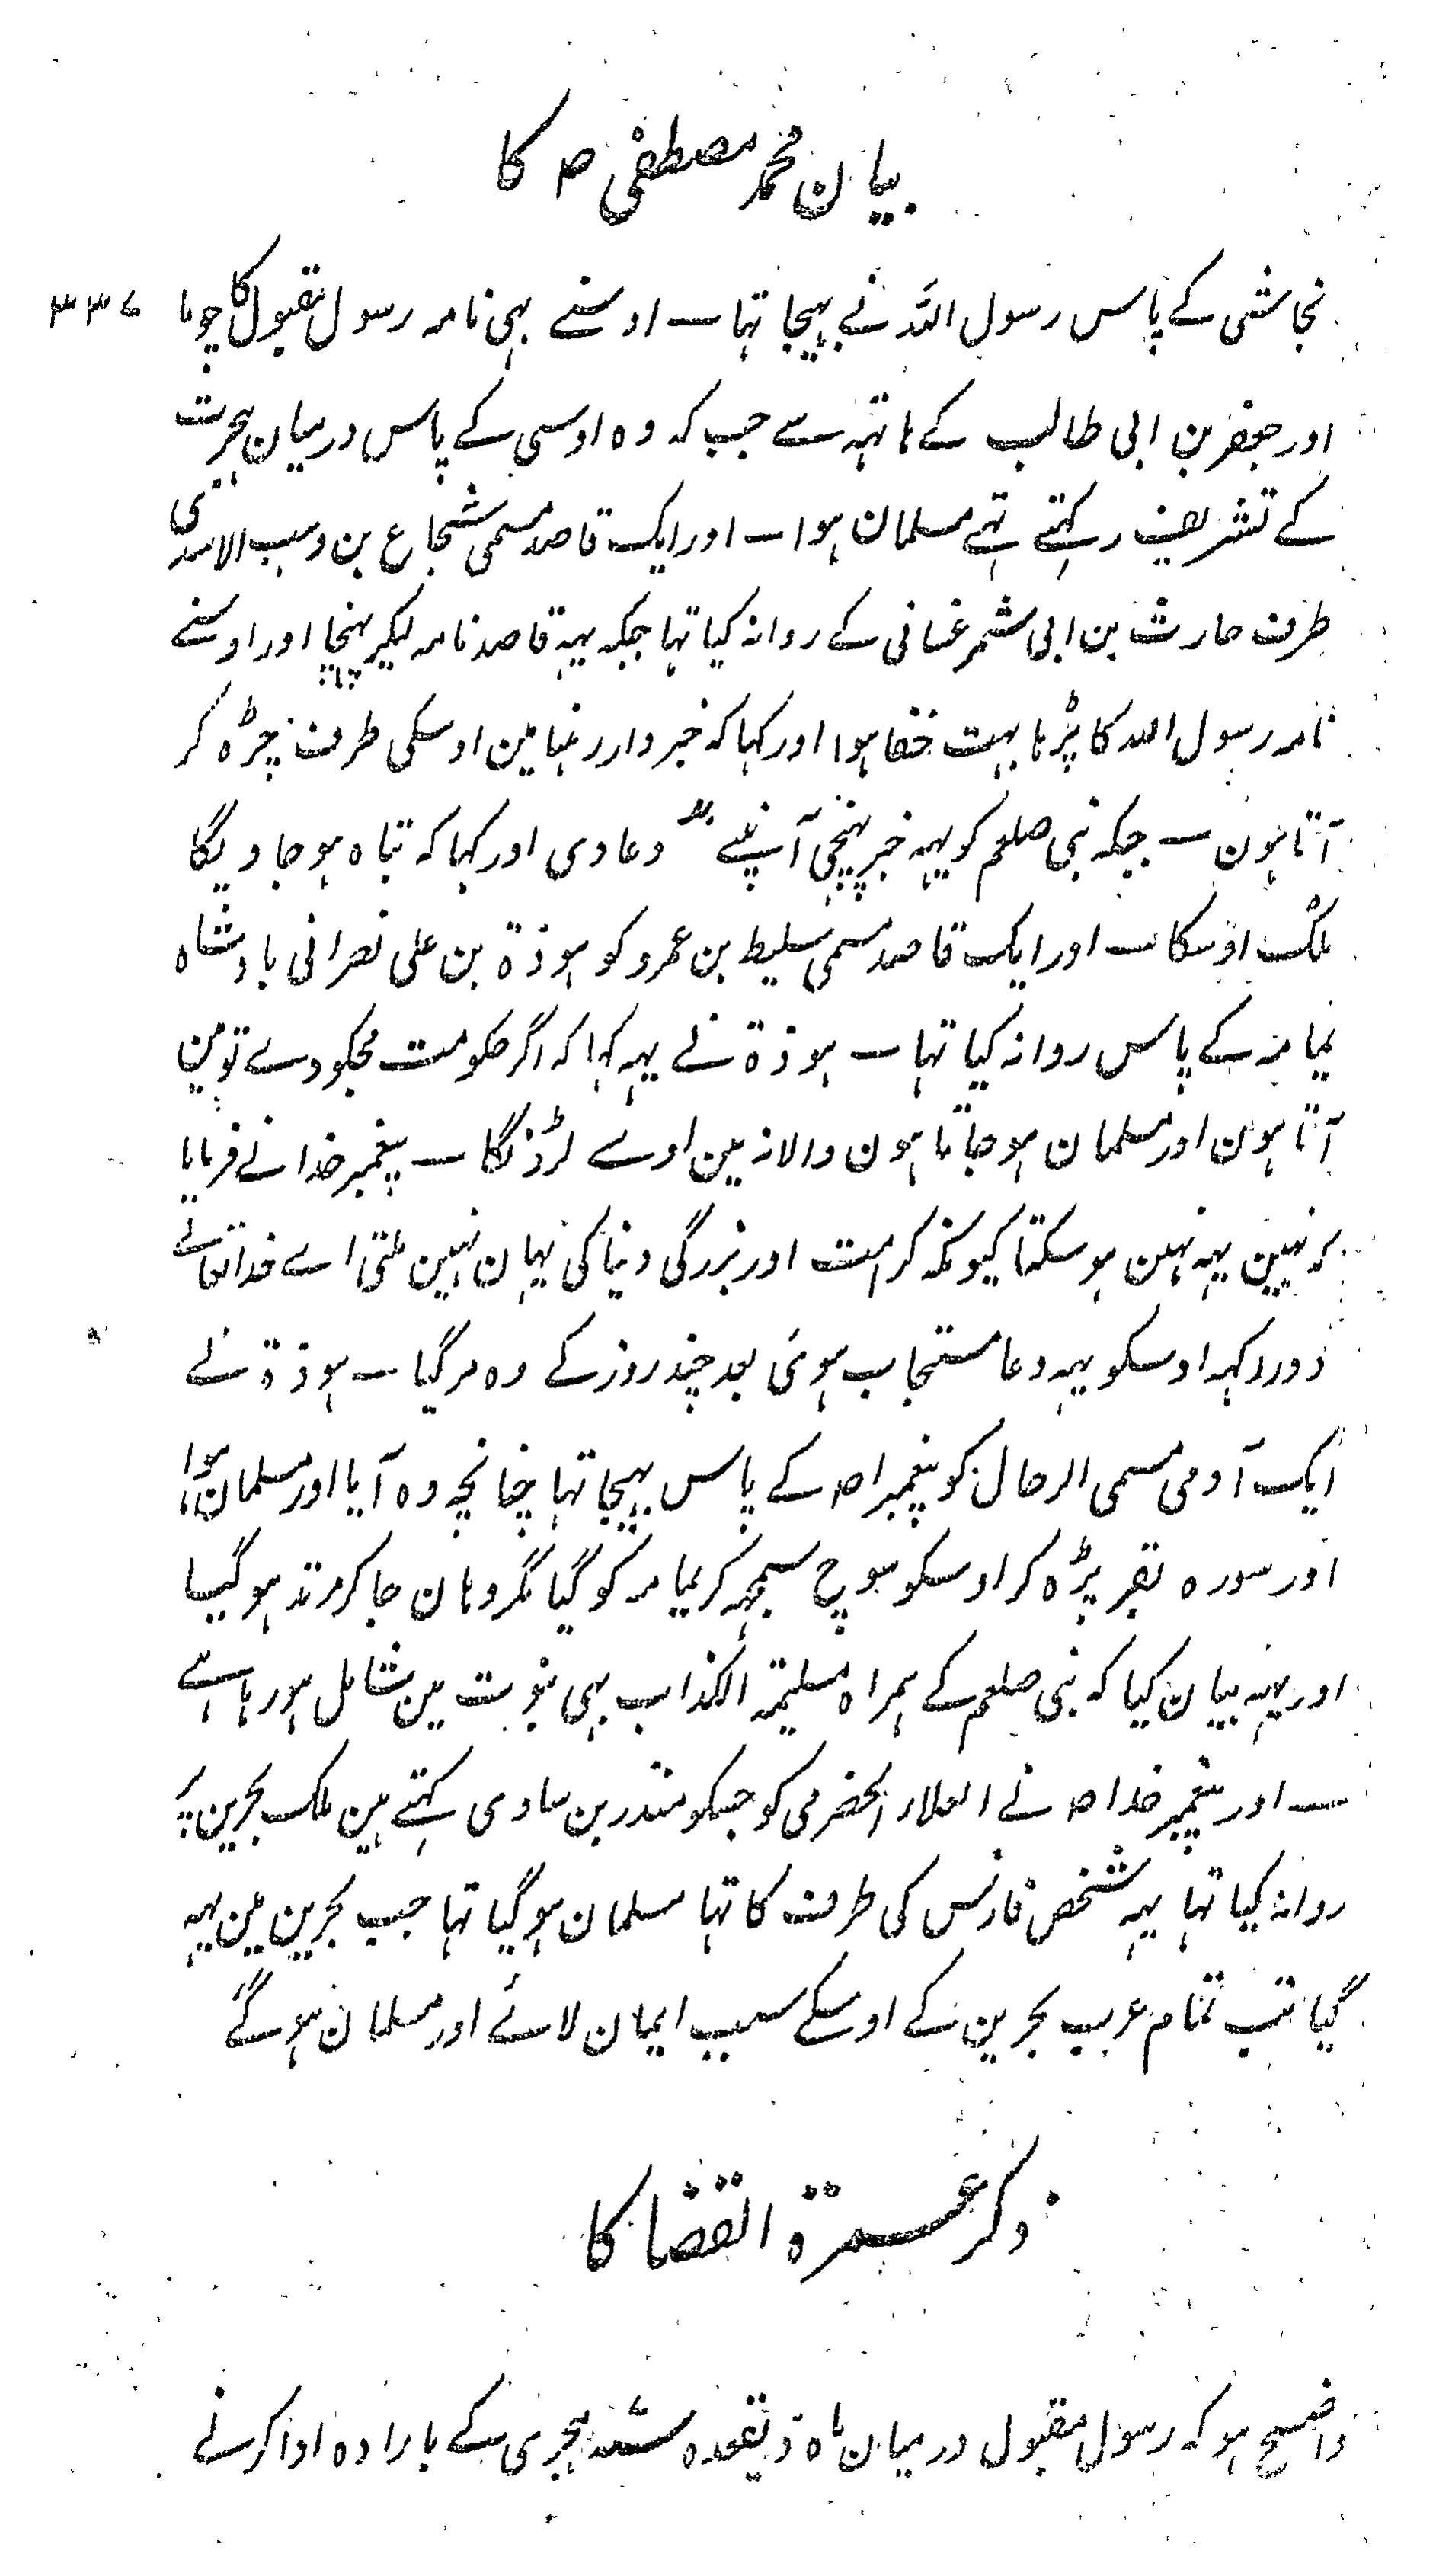 بیان محمد مصطفی ص کا
نجاشی کے پاس رسول اللہ نے بہیجا تہا ـ اوسنے بہی نامہ رسول مقبول کا چوما ۳۳۷
اور جعفر بن ابی طالب کے ہاتہہ سے جب کہ وہ اوسی کے پاس درمیان ہجرت
کے تشریف رکہتے تہے مسلمان ہوا ـ اور ایک قاصد مسمی شجاع بن وہب الاسدی
طرف حارث بن ابی شمر غسانی کے روانہ کیا تہا جبکہ یہہ قاصد نامہ لیکر پہنچا اور اوسنے
نامہ رسول اللہ کا پڑہا بہت خفا ہوا اور کہا کہ خبردار رہنا مین اوسکی طرف چڑہ کر
آتا ہون ـ جبکہ نبی صلعم کو یہہ خبر پہنچی آپنے بد دعا دی اور کہا کہ تباہ ہو جاویگا
ملک اوسکا ـ اور ایک قاصد مسمی سلیط بن عمرو کو ہوذۃ بن علی نصرانی بادشاہ
یمامہ کے پاس روانہ کیا تہا ـ ہوذۃ نے یہہ کہا کہ اگر حکومت مجکو دے تو مین
آتا ہون اور مسلمان ہو جاتا ہون والا نہ مین اوسے لڑونگا ـ پیغمبر خدا نے فرمایا
کہ نہین یہہ نہین ہو سکتا کیونکہ کرامت اور بزرگی دنیا کی یہان نہین ملتی اے خدا تعالے
دور رکہہ اوسکو یہہ دعا مستجاب ہوئی بعد چند روز کے وہ مر گیا ـ ہوذۃ نے
ایک آدمی مسمی الرحال کو پیغمبر اص کے پاس بہیجا تہا چنانچہ وہ آیا اور مسلمان ہوا
اور سورہ بقر پڑہ کر اوسکو سوچ سمجہہ کر یمامہ کو گیا مگر وہان جا کر مرتد ہو گیا
اور یہہ بیان کیا کہ نبی صلعم کے ہمراہ مسلیمۃ الکذاب بہی نبوت مین شامل ہو رہا ہے
ـ اور پیغمبر خدا ص نے العلاء الحضرمی کو جسکو منذر بن ساوی کہتے ہین ملک بحرین پر
روانہ کیا تہا یہہ شخص فارس کی طرف کا تہا مسلمان ہو گیا تہا جب بحرین مین یہہ
گیا تب تمام عرب بحرین کے اوسکے سبب ایمان لائے اور مسلمان ہو گئے
ذکر عمرۃ القضا کا
واضح ہو کہ رسول مقبول درمیان ماہ ذیقعدہ ہجری کے بارادہ ادا کرنے